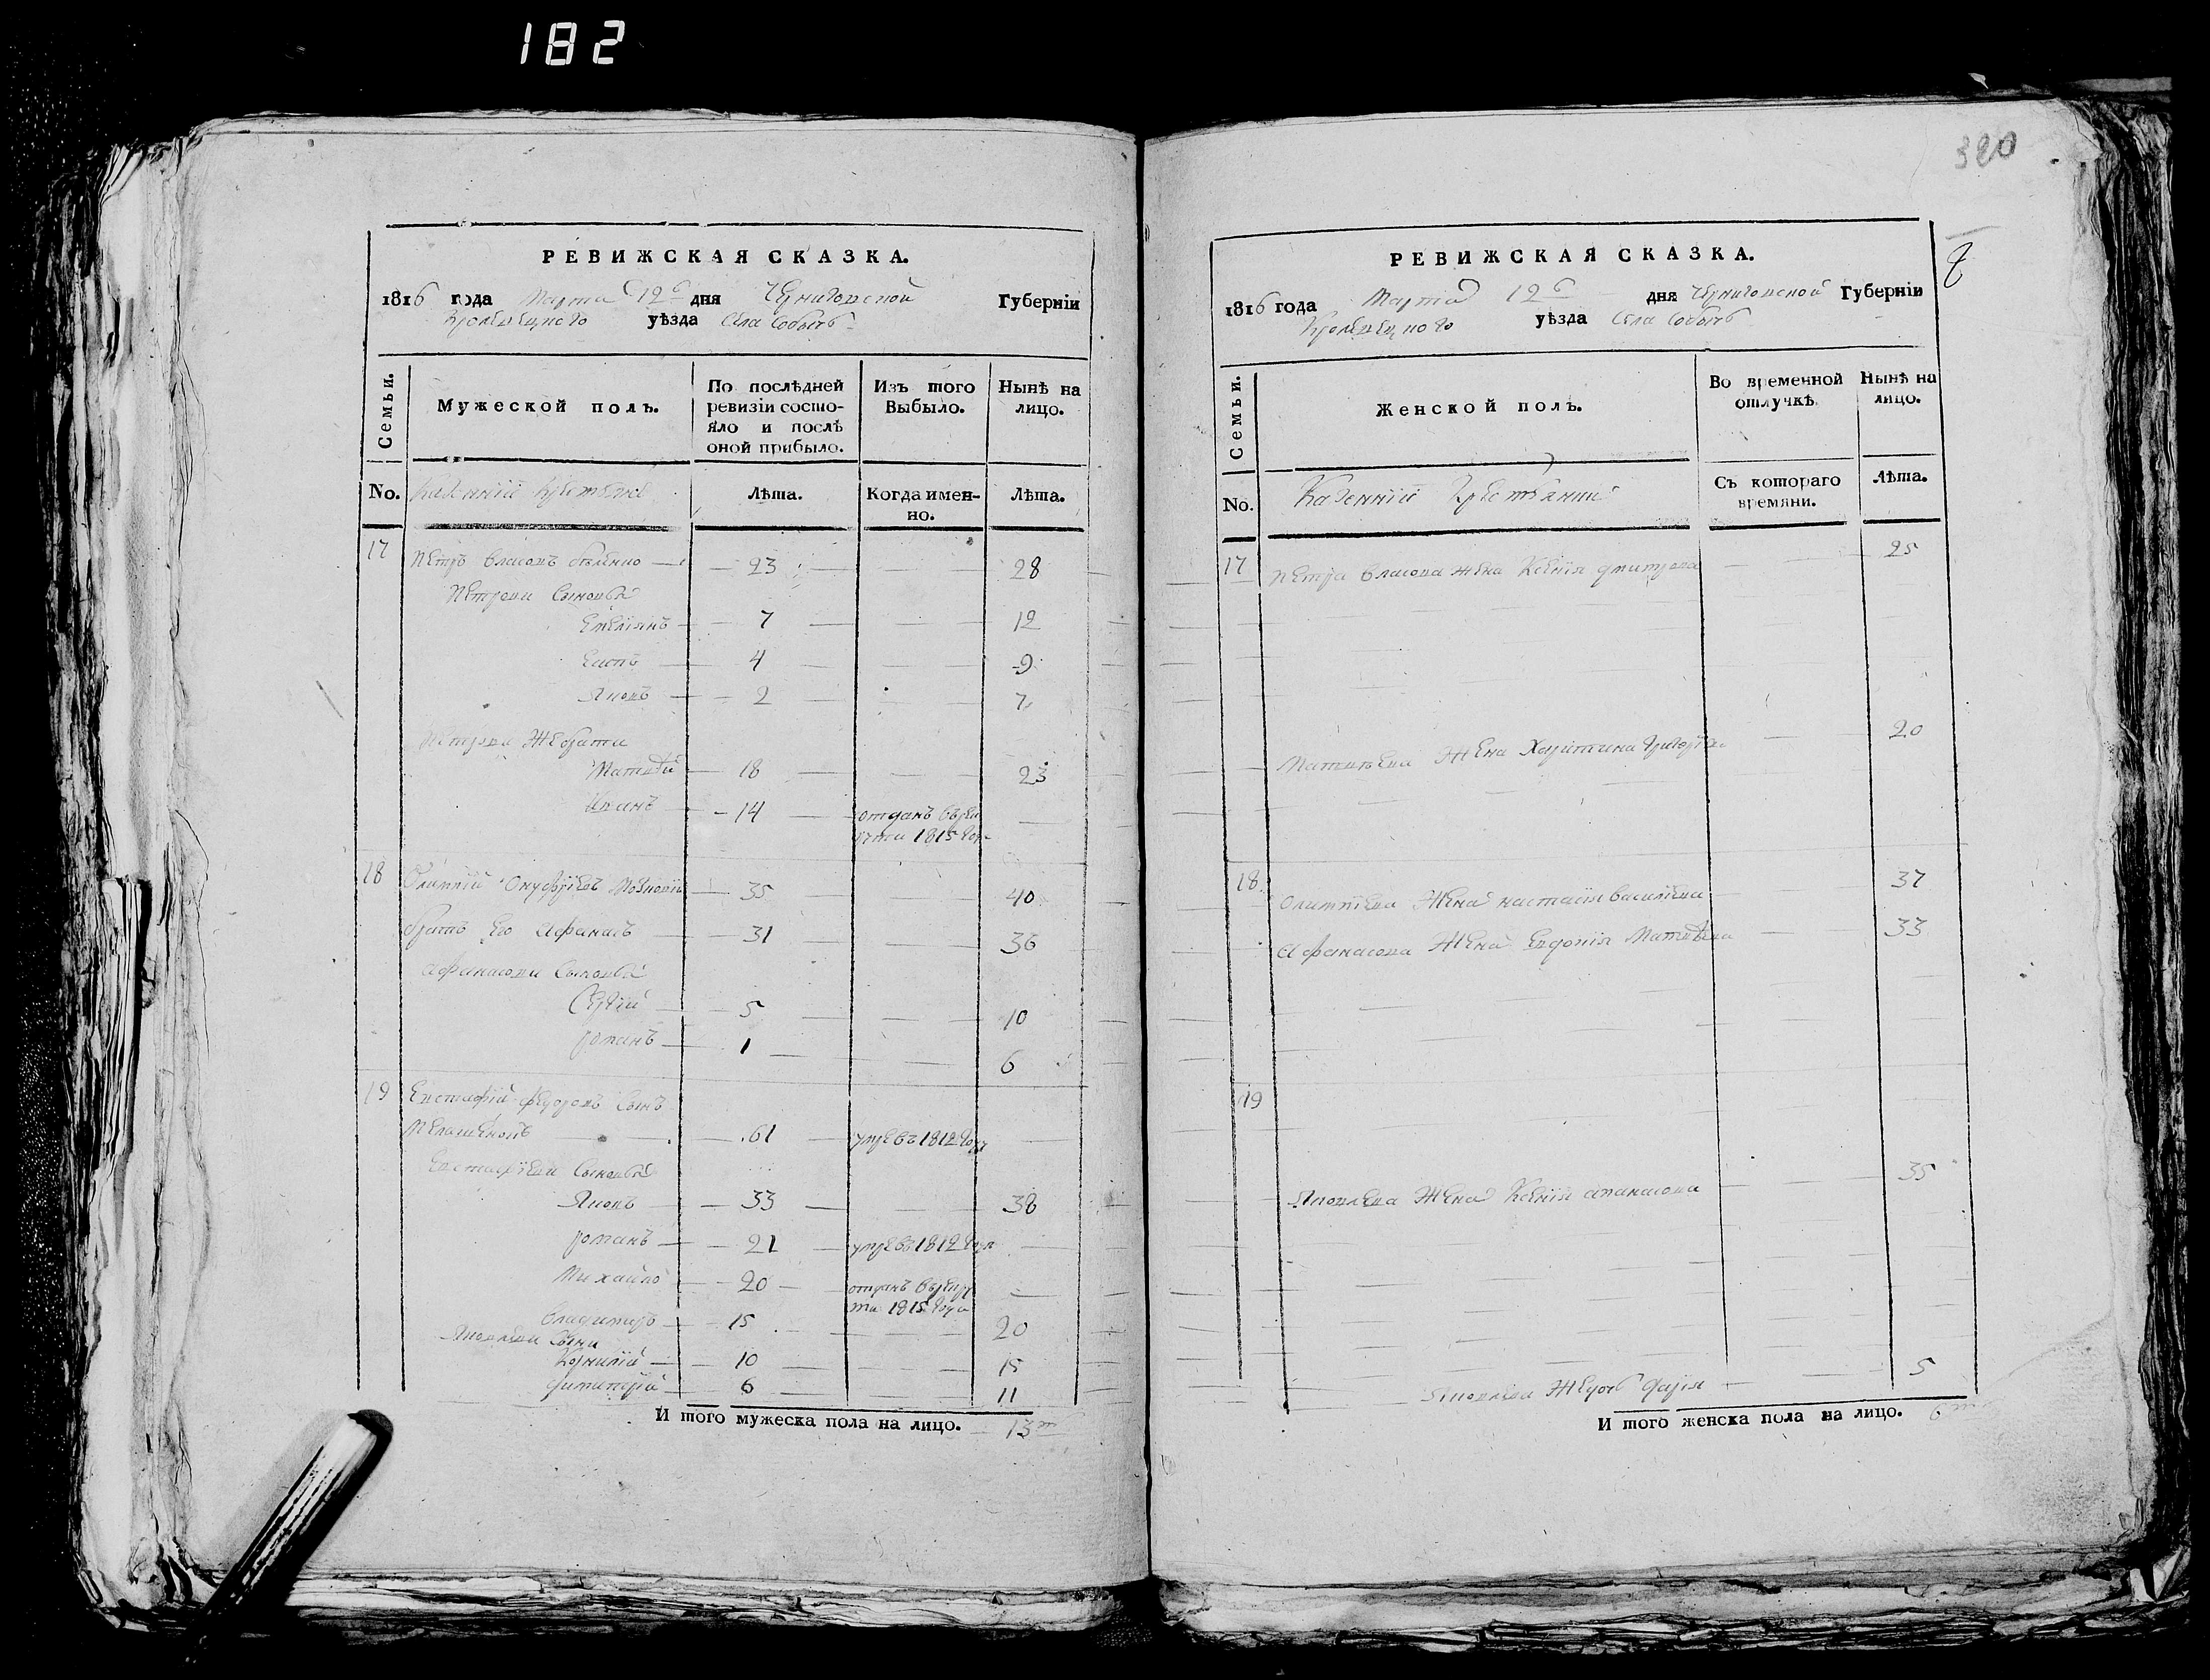 182
320
РЕВИЖСКАЯ СКАЗКА.
1816 года Марта 12 дня Черниговской Губерніи
Кролевецкого уѣзда Села Собычъ
Семьи.
Мужеской полъ.
По послѣдней ревизіи состояло и послѣ оной прибыло.
Изъ того Выбыло.
Нынѣ на лицо.
No. Казенніи Крестьяне
Лѣта.
Когда именно.
Лѣта.
17 Петръ Власовъ 23 28
Петрови Сыновья
Емеліянъ 7 12
Есипъ 4 9
Яковъ 2 7
Петрови Же брати
Матвѣй 18 23
Иванъ 14 отданъ въ рекруты 1815 года
18 Олимпій Онуфріевъ 35 40
братъ Его Афанасъ 31 36
Афанасови Сыновья
Сергій 5 10
романъ 1 6
19 Евстафій Федоровъ Сынъ
61 умре въ 1812 году
Евстафіеви Сыновья
Яковъ 33 38
романъ 21 умре въ 1812 году
Михайло 20 отданъ въ рекруты 1815 года
Владимиръ 15 20
Яковлеви Сыни
Корнилій 10 15
6 11
И того мужеска пола на лицо. 13
РЕВИЖСКАЯ СКАЗКА.
1816 года Марта 12 дня Черниговской Губерніи
Кролевецкого уѣзда Села Собычъ
Семьи.
Женской полъ.
Во временной отлучкѣ.
Нынѣ на лицо.
No. Казенніи Крестьянки
Съ котораго времяни.
Лѣта.
17 Петра Власова жена Ксенія дмитрова 25
Матвѣева Жена Харитина Григорьева 20
18 Олимпіева Жена настасія василіева 37
Афанасова Жена Евдокія Матвѣева 33
19
Яковлева Жена Ксенія апанасова 35
Яковлева Же дочь дарія 5
И того женска пола на лицо. 6